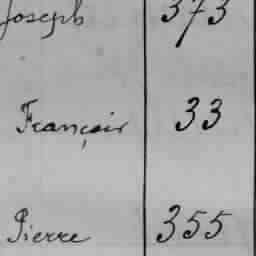 Joseph 373
François 33
Pierre 355